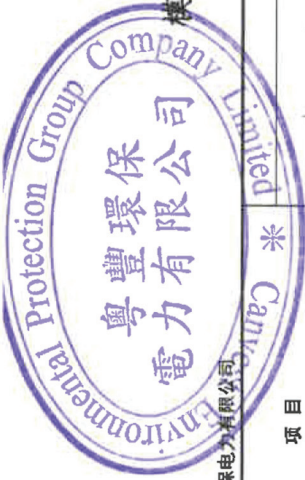 Environmental Protection Group Company Limited
* Canve
粤豐環保
電力有限公司
保电力有限公司
项目